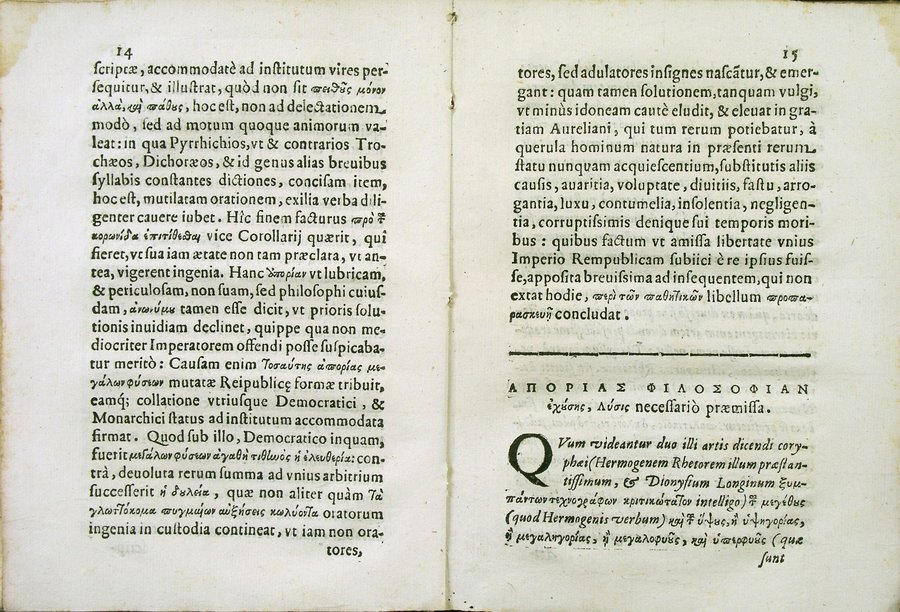 14
scriptæ, accommodatè ad institutum vires per-
sequitur, & illustrat, quòd non sit πειθοῦς μόνον
ἀλλὰ, καὶ πάθους, hoc est, non ad delectationem
modò, sed ad motum quoque animorum va-
leat: in qua Pyrrhichios, vt & contrarios Tro-
chæos, Dichoræos, & id genus alias breuibus
syllabis constantes dictiones, concisam item,
hoc est, mutilatam orationem, exilia verba dili-
genter cauere iubet. Hîc finem facturus πρὸ τ
κορωνίδα ἐπιτίθεσθαι vice Corollarij quærit, qui
fieret, vt sua iam ætate non tam præclara, vt an-
tea, vigerent ingenia. Hanc ἀπορίαν vt lubricam,
& periculosam, non suam, sed philosophi cuius-
dam, ἀνωνύμου tamen esse dicit, vt prioris solu-
tionis inuidiam declinet, quippe qua non me-
diocriter Imperatorem offendi posse suspicaba-
tur meritò: Causam enim τοσαύτης ἀπορίας με-
γάλων φύσεων mutatæ Reipublicę formæ tribuit,
eamq; collatione vtriusque Democratici, &
Monarchici status ad institutum accommodata
firmat. Quod sub illo, Democratico inquam,
fuerit μεγάλων φύσεων ἀγαθὴ τιθηνὸς ἡ ἐλευθερία: con-
trà, deuoluta rerum summa ad vnius arbitrium
successerit ἡ δουλεία, quæ non aliter quàm τὰ
γλωττόκομα πυγμαίων αὐξήσεις κωλύοντα oratorum
ingenia in custodia contineat, vt iam non ora-
tores,
15
tores, sed adulatores insignes nascātur, & emer-
gant: quam tamen solutionem, tanquam vulgi,
vt minùs idoneam cautè eludit, & eleuat in gra-
tiam Aureliani, qui tum rerum potiebatur, à
querula hominum natura in præsenti rerum
statu nunquam acquiescentium, substitutis aliis
causis, auaritia, voluptate, diuitiis, fastu, arro-
gantia, luxu, contumelia, insolentia, negligen-
tia, corruptissimis denique sui temporis mori-
bus: quibus factum vt amissa libertate vnius
Imperio Rempublicam subiici è re ipsius fuis-
se, apposita breuissima ad insequentem, qui non
extat hodie, περὶ τῶν παθητικῶν libellum προπα-
ρασκευῇ concludat.
ΑΠΟΡΙΑΣ ΦΙΛΟΣΟΦΙΑΝ
ἐχούσης, λύσις necessariò præmissa.
QVum videantur duo illi artis dicendi cory-
phæi (Hermogenem Rhetorem illum præstan-
tissimum, & Dionysium Longinum ξυμ-
πάντων τεχνογράφων κριτικώτατον intelligo) τ μεγέθους
(quod Hermogenis verbum) καὶ τ ὕψους, ἢ ὑψηγορίας,
ἢ μεγαληγορίας, ἢ μεγαλοφυοῦς, καὶ ὑπερφυοῦς (quæ
sunt